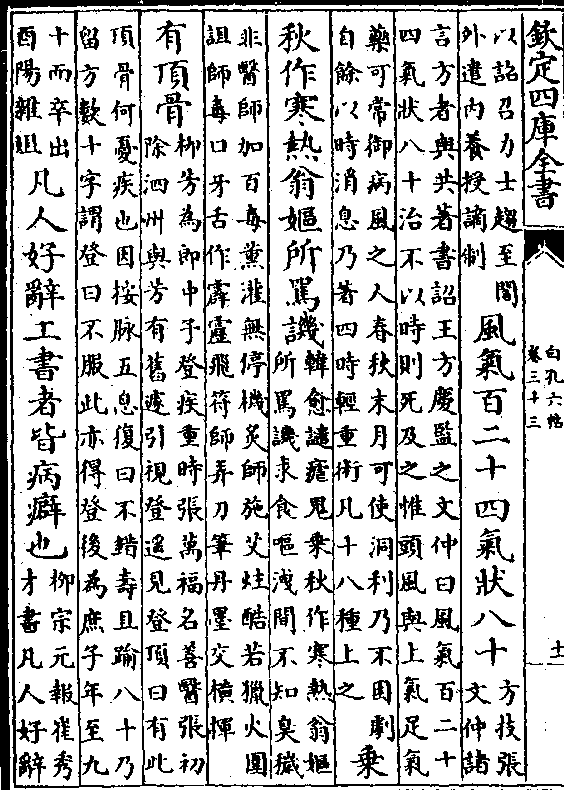 欽定四庫全書
白孔六帖
卷三十三
十一
以詔召力士趨至閤
外遣内養授謫制
風氣百二十四氣狀八十
方技張
文仲諸
言方者與共著書詔王方慶監之文仲曰風氣百二十
四氣狀八十治不以時則死及之惟頭風與上氣足氣
藥可常御病風之人春秋末月可使洞利乃不困劇
自餘以時消息乃著四時輕重術凡十八種上之
乘
秋作寒熱翁嫗所罵譏
韓愈譴瘧鬼乘秋作寒熱翁嫗
所罵譏求食嘔洩間不知臭穢
非醫師加百毒薰灌無停機灸師施艾炷酷若獵火圍
詛師毒口牙舌作霹靂飛符師弄刀筆丹墨交橫揮
有頂骨
柳芳為郎中子登疾重時張萬福名善醫張初
除泗州與芳有舊遽引視登遥見登頂曰有此
頂骨何憂疾也因按脉五息復曰不錯壽且踰八十乃
留方數十字謂登曰不服此亦得登後為庶子年至九
十而卒出
酉陽雜俎
凡人好辭工書者皆病癖也
柳宗元報崔秀
才書凡人好辭